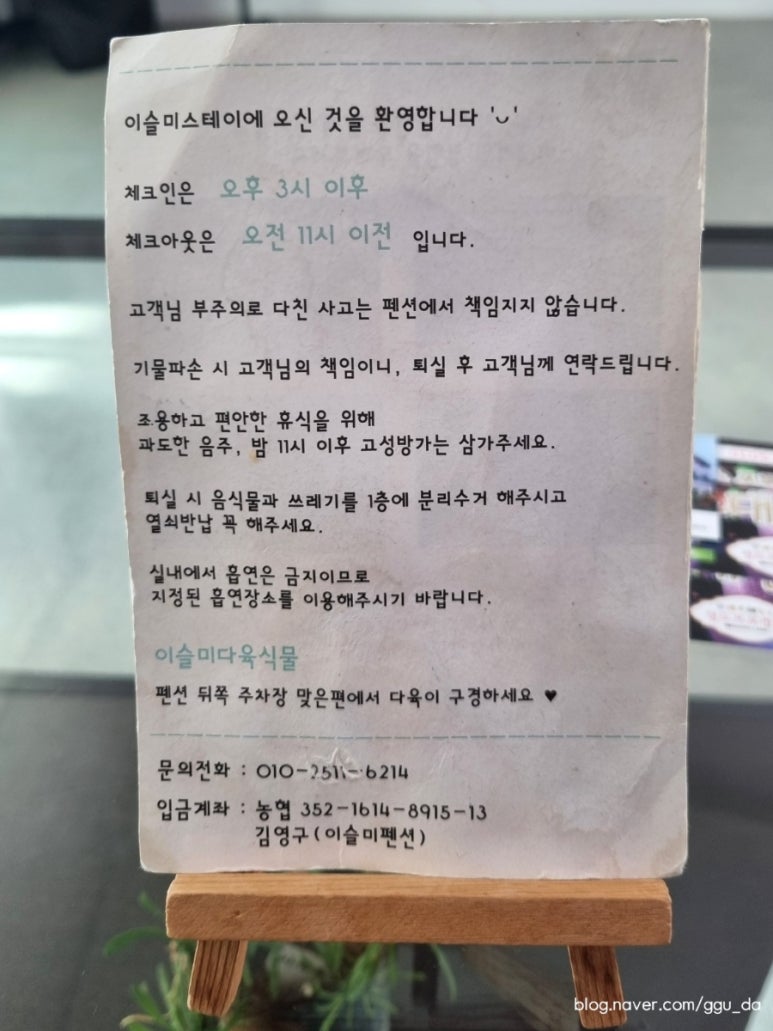 이슬미스테이에 오신 것을 환영합니다 '◡'
체크인은 오후 3시 이후
체크아웃은 오전 11시 이전 입니다.
고객님 부주의로 다친 사고는 펜션에서 책임지지 않습니다.
기물파손 시 고객님의 책임이니, 퇴실 후 고객님께 연락드립니다.
조용하고 편안한 휴식을 위해
과도한 음주, 밤 11시 이후 고성방가는 삼가주세요.
퇴실 시 음식물과 쓰레기를 1층에 분리수거 해주시고
열쇠반납 꼭 해주세요.
실내에서 흡연은 금지이므로
지정된 흡연장소를 이용해주시기 바랍니다.
이슬미다육식물
펜션 뒤쪽 주차장 맞은편에서 다육이 구경하세요 ♥
문의전화 : 010-2511-6214
입금계좌 : 농협 352-1614-8915-13
김영구(이슬미펜션)
blog.naver.com/ggu_da